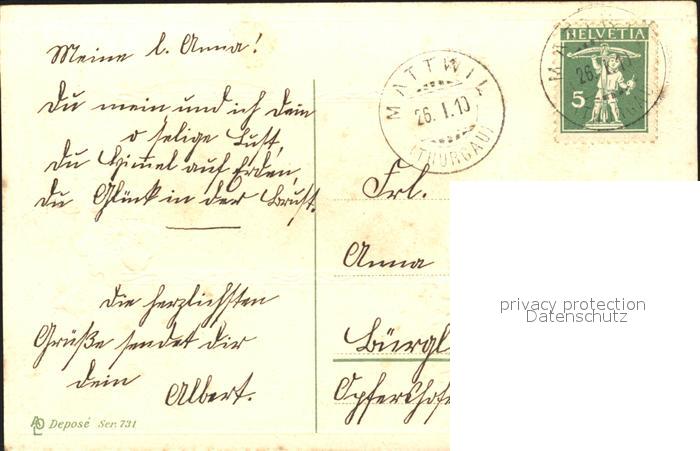 Meine l. Anna!
Du mein und ich dein
o selige Lust,
Du Himmel auf Erden,
Du Glück in der Brust.
Die herzlichsten
Grüße sendet dir
dein
Albert.
Deposé Ser. 731
MATTWIL
26. I. 10
(THURGAU)
HELVETIA
5
MATTWIL
26. I. 1
Frl.
Anna
Bürgl
Opfershof
privacy protection
Datenschutz